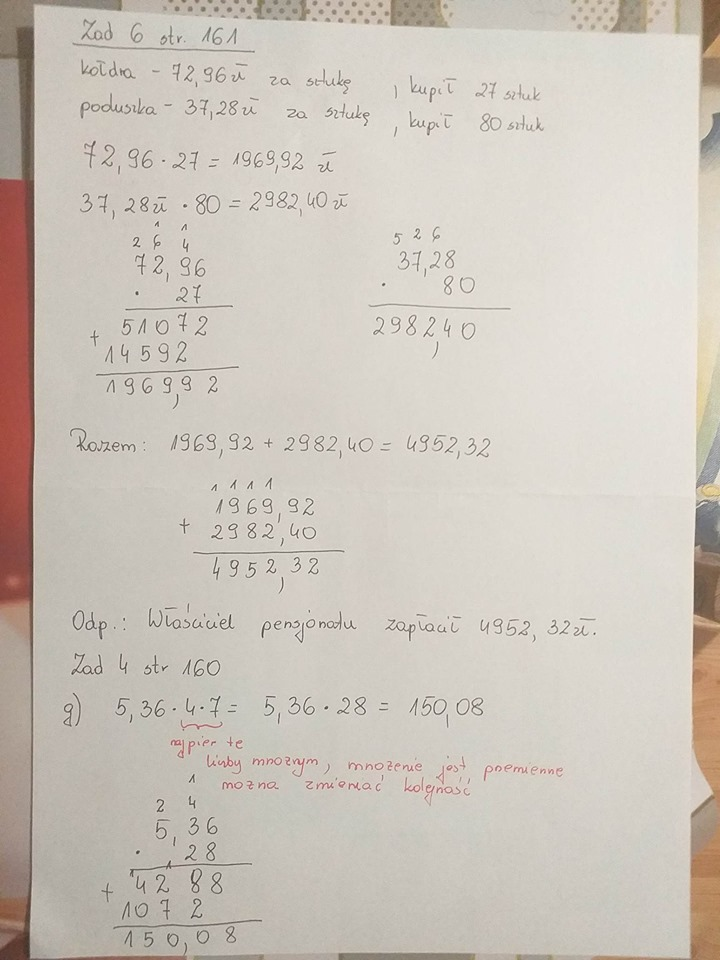 Zad 6 str. 161
kołdra - 72,96 zł za sztukę , kupił 27 sztuk
poduszka - 37,28 zł za sztukę , kupił 80 sztuk
72,96 · 27 = 1969,92 zł
37,28 zł · 80 = 2982,40 zł
1 1
2 6 4
72,96
· 27
51072
+ 14592
1969,92
5 2 6
37,28
· 80
2982,40
Razem: 1969,92 + 2982,40 = 4952,32
1 1 1 1
1969,92
+ 2982,40
4952,32
Odp.: Właściciel pensjonatu zapłacił 4952,32 zł.
Zad 4 str 160
g) 5,36 · 4 · 7 = 5,36 · 28 = 150,08
najpier te
liczby mnożnym, mnożenie jest przemienne
można zmieniać kolejność
1
2 4
5,36
· 28
1 1
4288
+ 1072
150,08